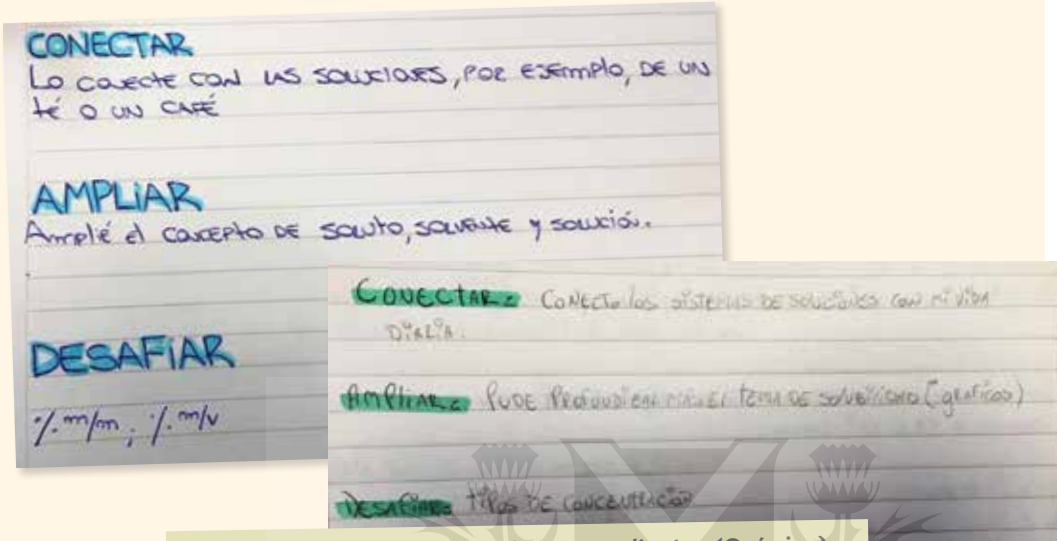 CONECTAR
Lo conecte con las soluciones, por ejemplo, de un
té o un café
AMPLIAR
Amplié el concepto de soluto, solvente y solución.
DESAFIAR
%m/m ; %m/v
CONECTAR: Conecto los sistemas de soluciones con mi vida
diaria.
Ampliar: Pude profundizar más el tema de solubilidad (graficos)
Desafiar: tipos de concentración
(Química)